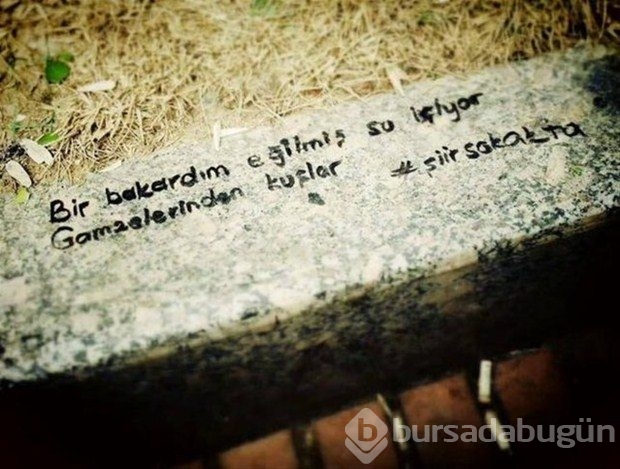 Bir bakardım eğilmiş su içiyor
Gamzelerinden kuşlar #şiirsokakta
bursadabugün